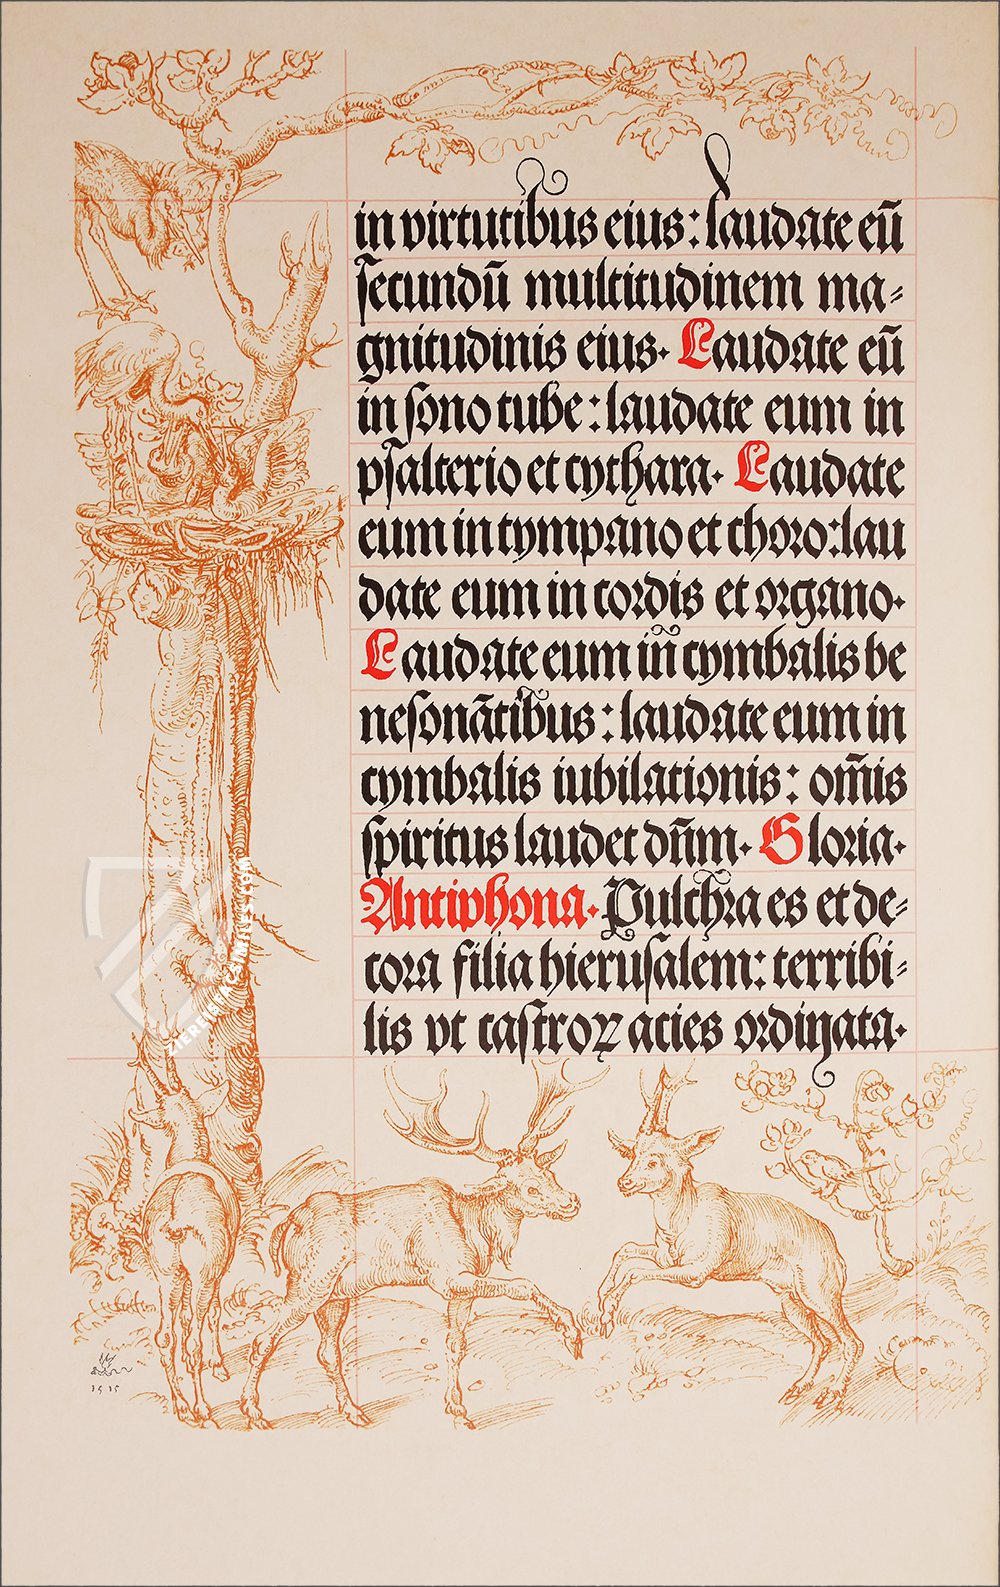 in virtutibus eius: laudate eū
ſecundū multitudinem ma⸗
gnitudinis eius. Laudate eū
in ſono tube: laudate eum in
pſalterio et cythara. Laudate
eum in tympano et choro: lau
date eum in cordis et organo.
Laudate eum in cymbalis be
neſonātibus: laudate eum in
cymbalis iubilationis: om̄is
ſpiritus laudet dn̄m. Gloria.
Antiphona. Pulchra es et de⸗
cora filia hieruſalem: terribi⸗
lis vt caſtroꝝ acies ordinata.
1515
ZIEREIS FACSIMILES.COM